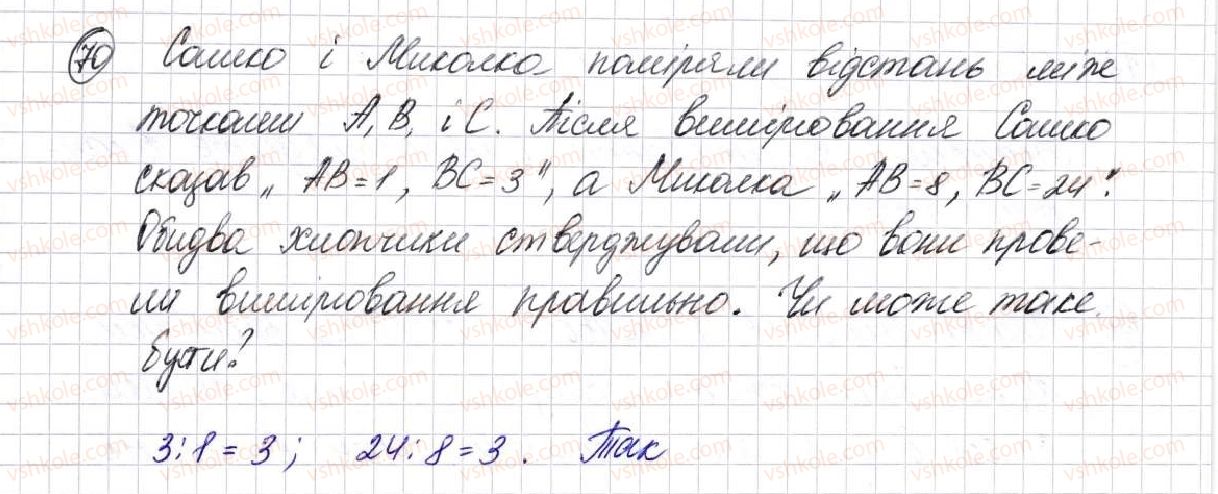 70 Сашко і Миколка поміряли відстань між
точками А, В, і С. Після вимірювання Сашко
сказав „АВ=1, ВС=3", а Миколка „АВ=8, ВС=24".
Обидва хлопчики стверджували, що вони прове-
ли вимірювання правильно. Чи може таке
бути?
3:1=3; 24:8=3. Так